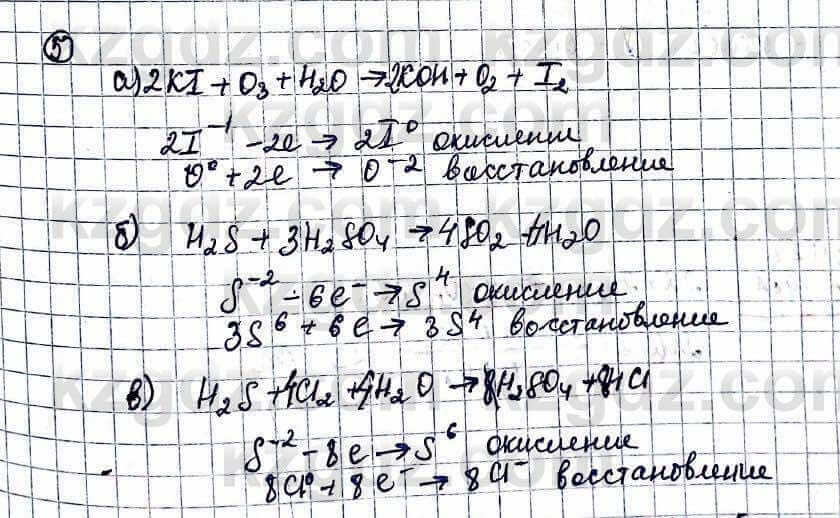 5
а) 2KI + O₃ + H₂O → 2KOH + O₂ + I₂
2I⁻¹ - 2e → 2I⁰ окисление
O⁰ + 2e → O⁻² восстановление
б) H₂S + 3H₂SO₄ → 4SO₂ + 4H₂O
S⁻² - 6e⁻ → S⁴ окисление
3S⁶ + 6e → 3S⁴ восстановление
в) H₂S + 4Cl₂ + 4H₂O → H₂SO₄ + 8HCl
S⁻² - 8e → S⁶ окисление
8Cl⁰ + 8e⁻ → 8Cl⁻ восстановление